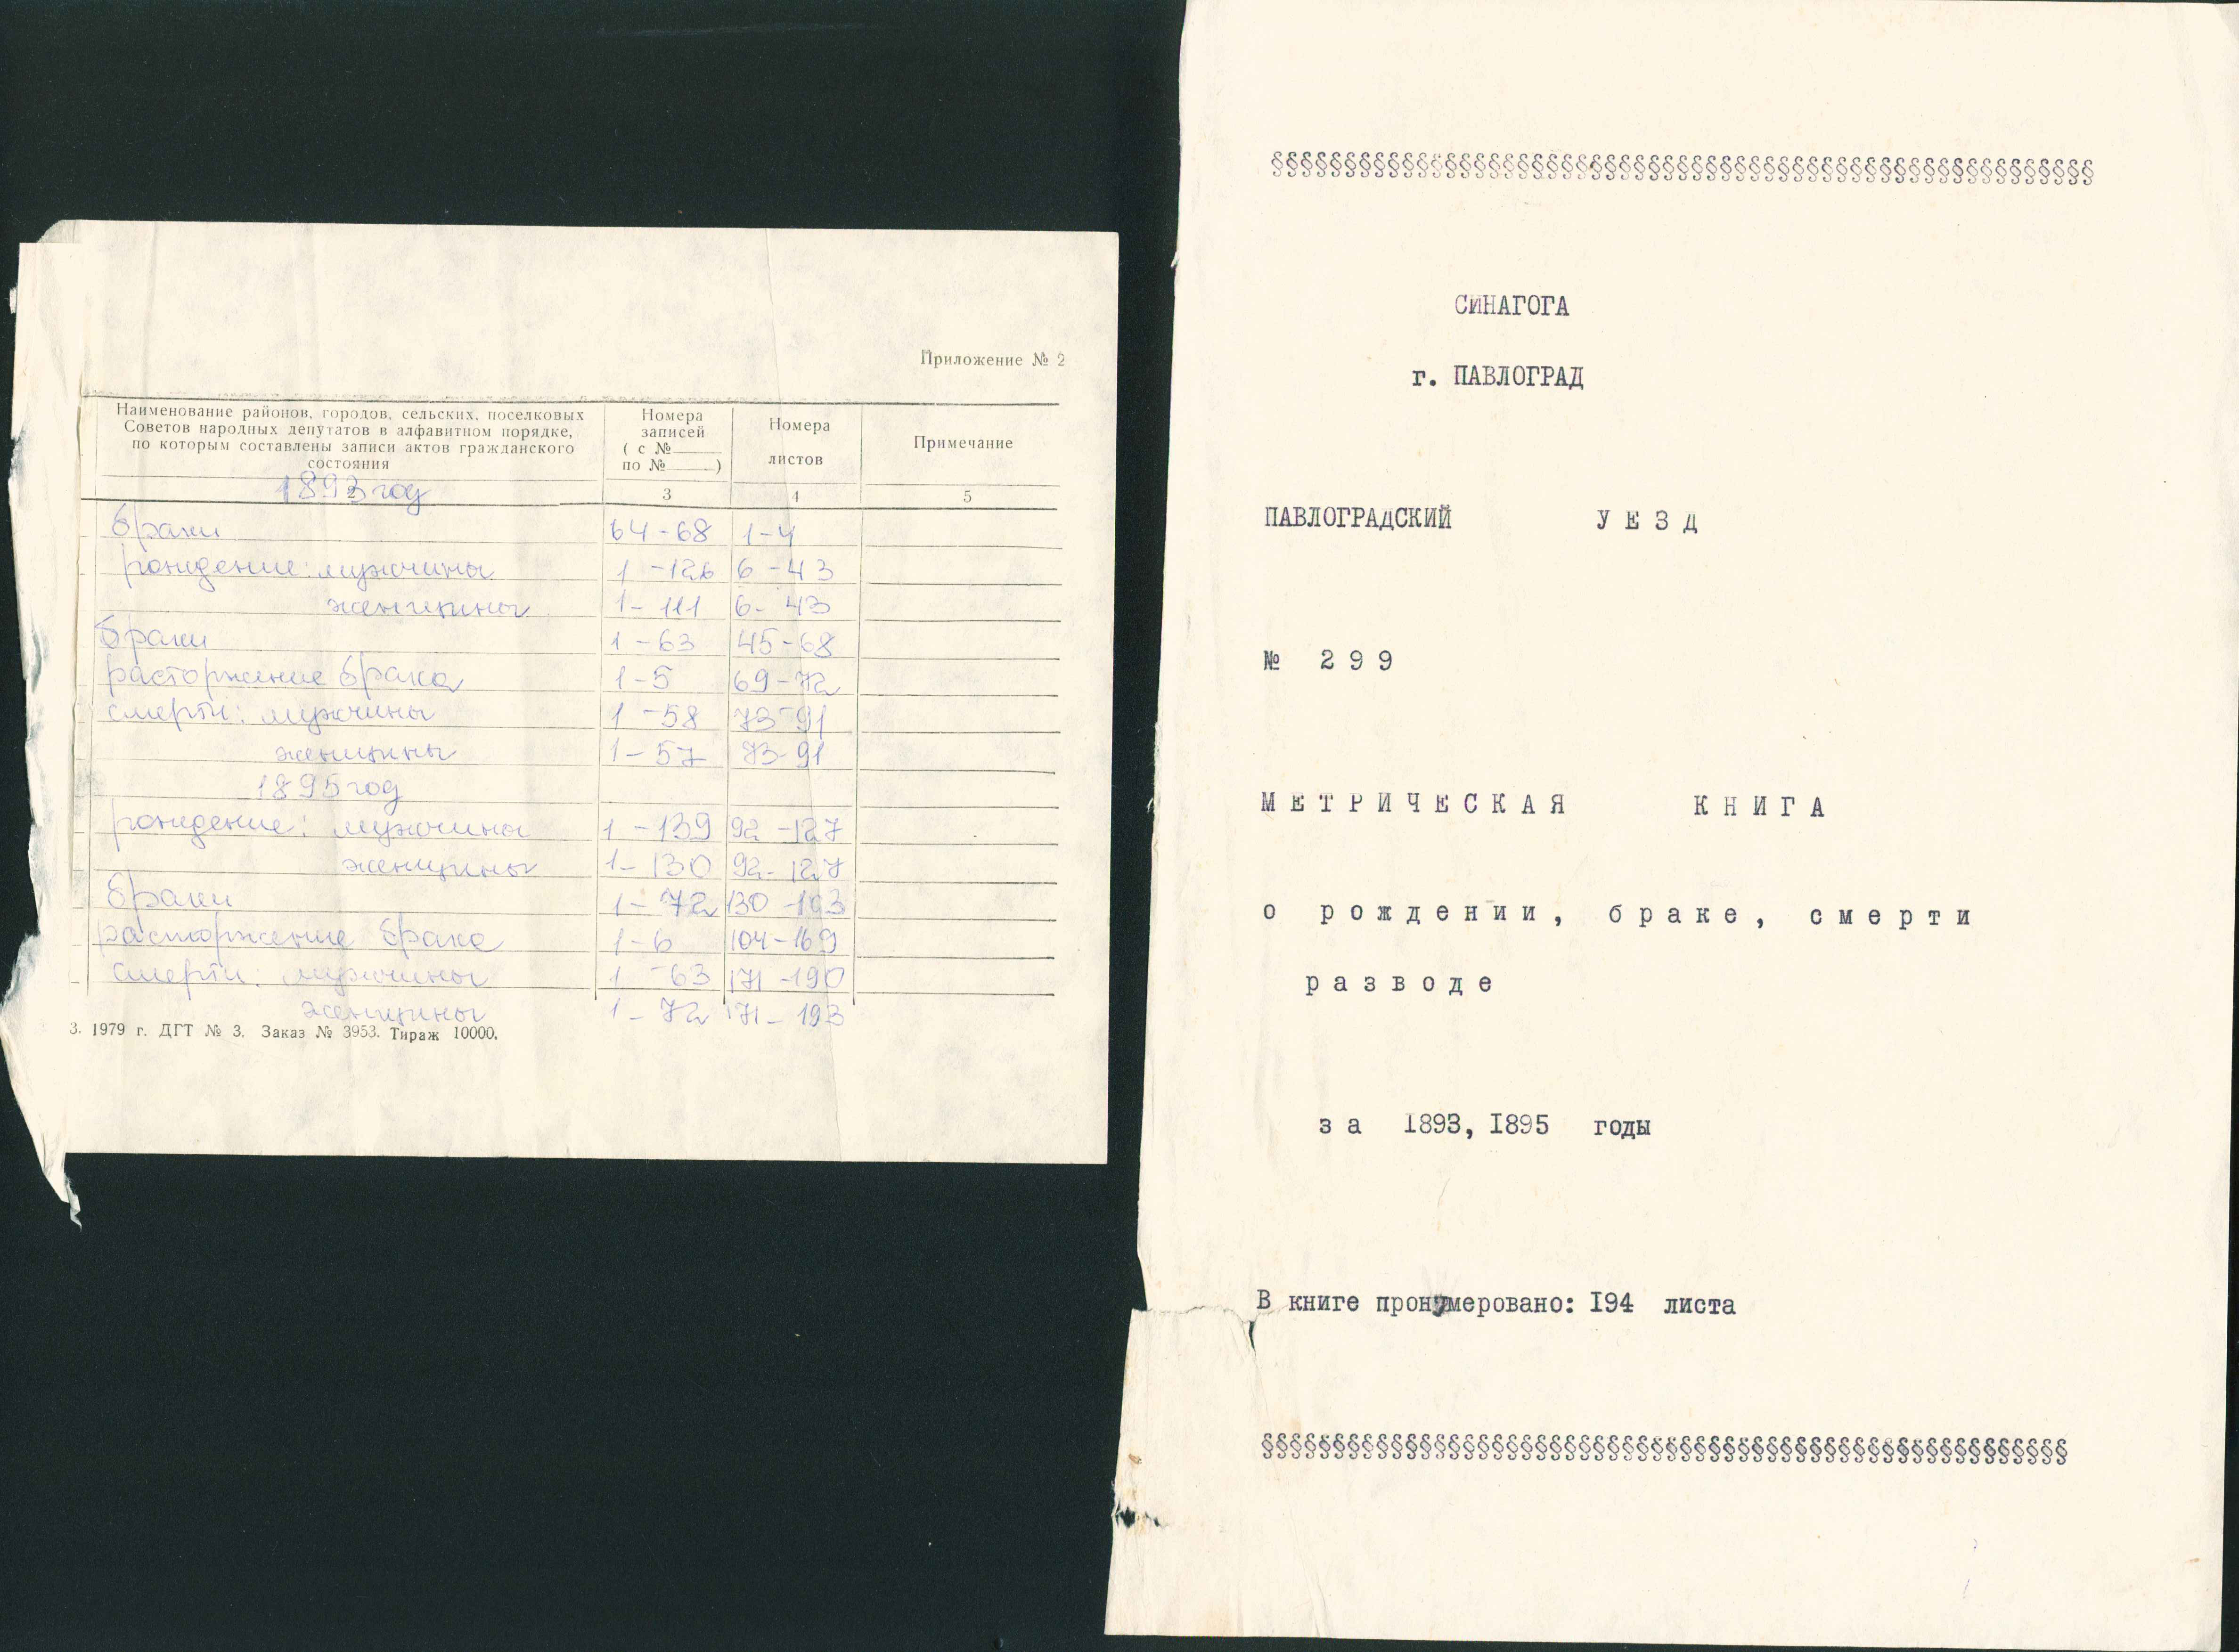 Приложение № 2
Наименование районов, городов, сельских, поселковых
Советов народных депутатов в алфавитном порядке,
по которым составлены записи актов гражданского
состояния
Номера
записей
( с №
по № )
Номера
листов
Примечание
1893 год 3 4 5
браки 64-68 1-4
рождение: мужчины 1-126 6-43
женщины 1-111 6-43
браки 1-63 45-68
расторжение брака 1-5 69-72
смерти: мужчины 1-58 73-91
женщины 1-57 73-91
1895 год
рождение: мужчины 1-139 92-127
женщины 1-130 92-127
браки 1-72 130-163
расторжение брака 1-6 104-169
смерти: мужчины 1-63 171-190
женщины 1-72 171-193
3. 1979 г. ДГТ № 3. Заказ № 3953. Тираж 10000.
§§§§§§§§§§§§§§§§§§§§§§§§§§§§§§§§§§§§§§§§§§§§§§§§§§§§§§§§§
СИНАГОГА
г. ПАВЛОГРАД
ПАВЛОГРАДСКИЙ У Е З Д
№ 2 9 9
М Е Т Р И Ч Е С К А Я К Н И Г А
о р о ж д е н и и , б р а к е , с м е р т и
р а з в о д е
з а 1893, I895 годы
В книге пронумеровано: I94 листа
§§§§§§§§§§§§§§§§§§§§§§§§§§§§§§§§§§§§§§§§§§§§§§§§§§§§§§§§